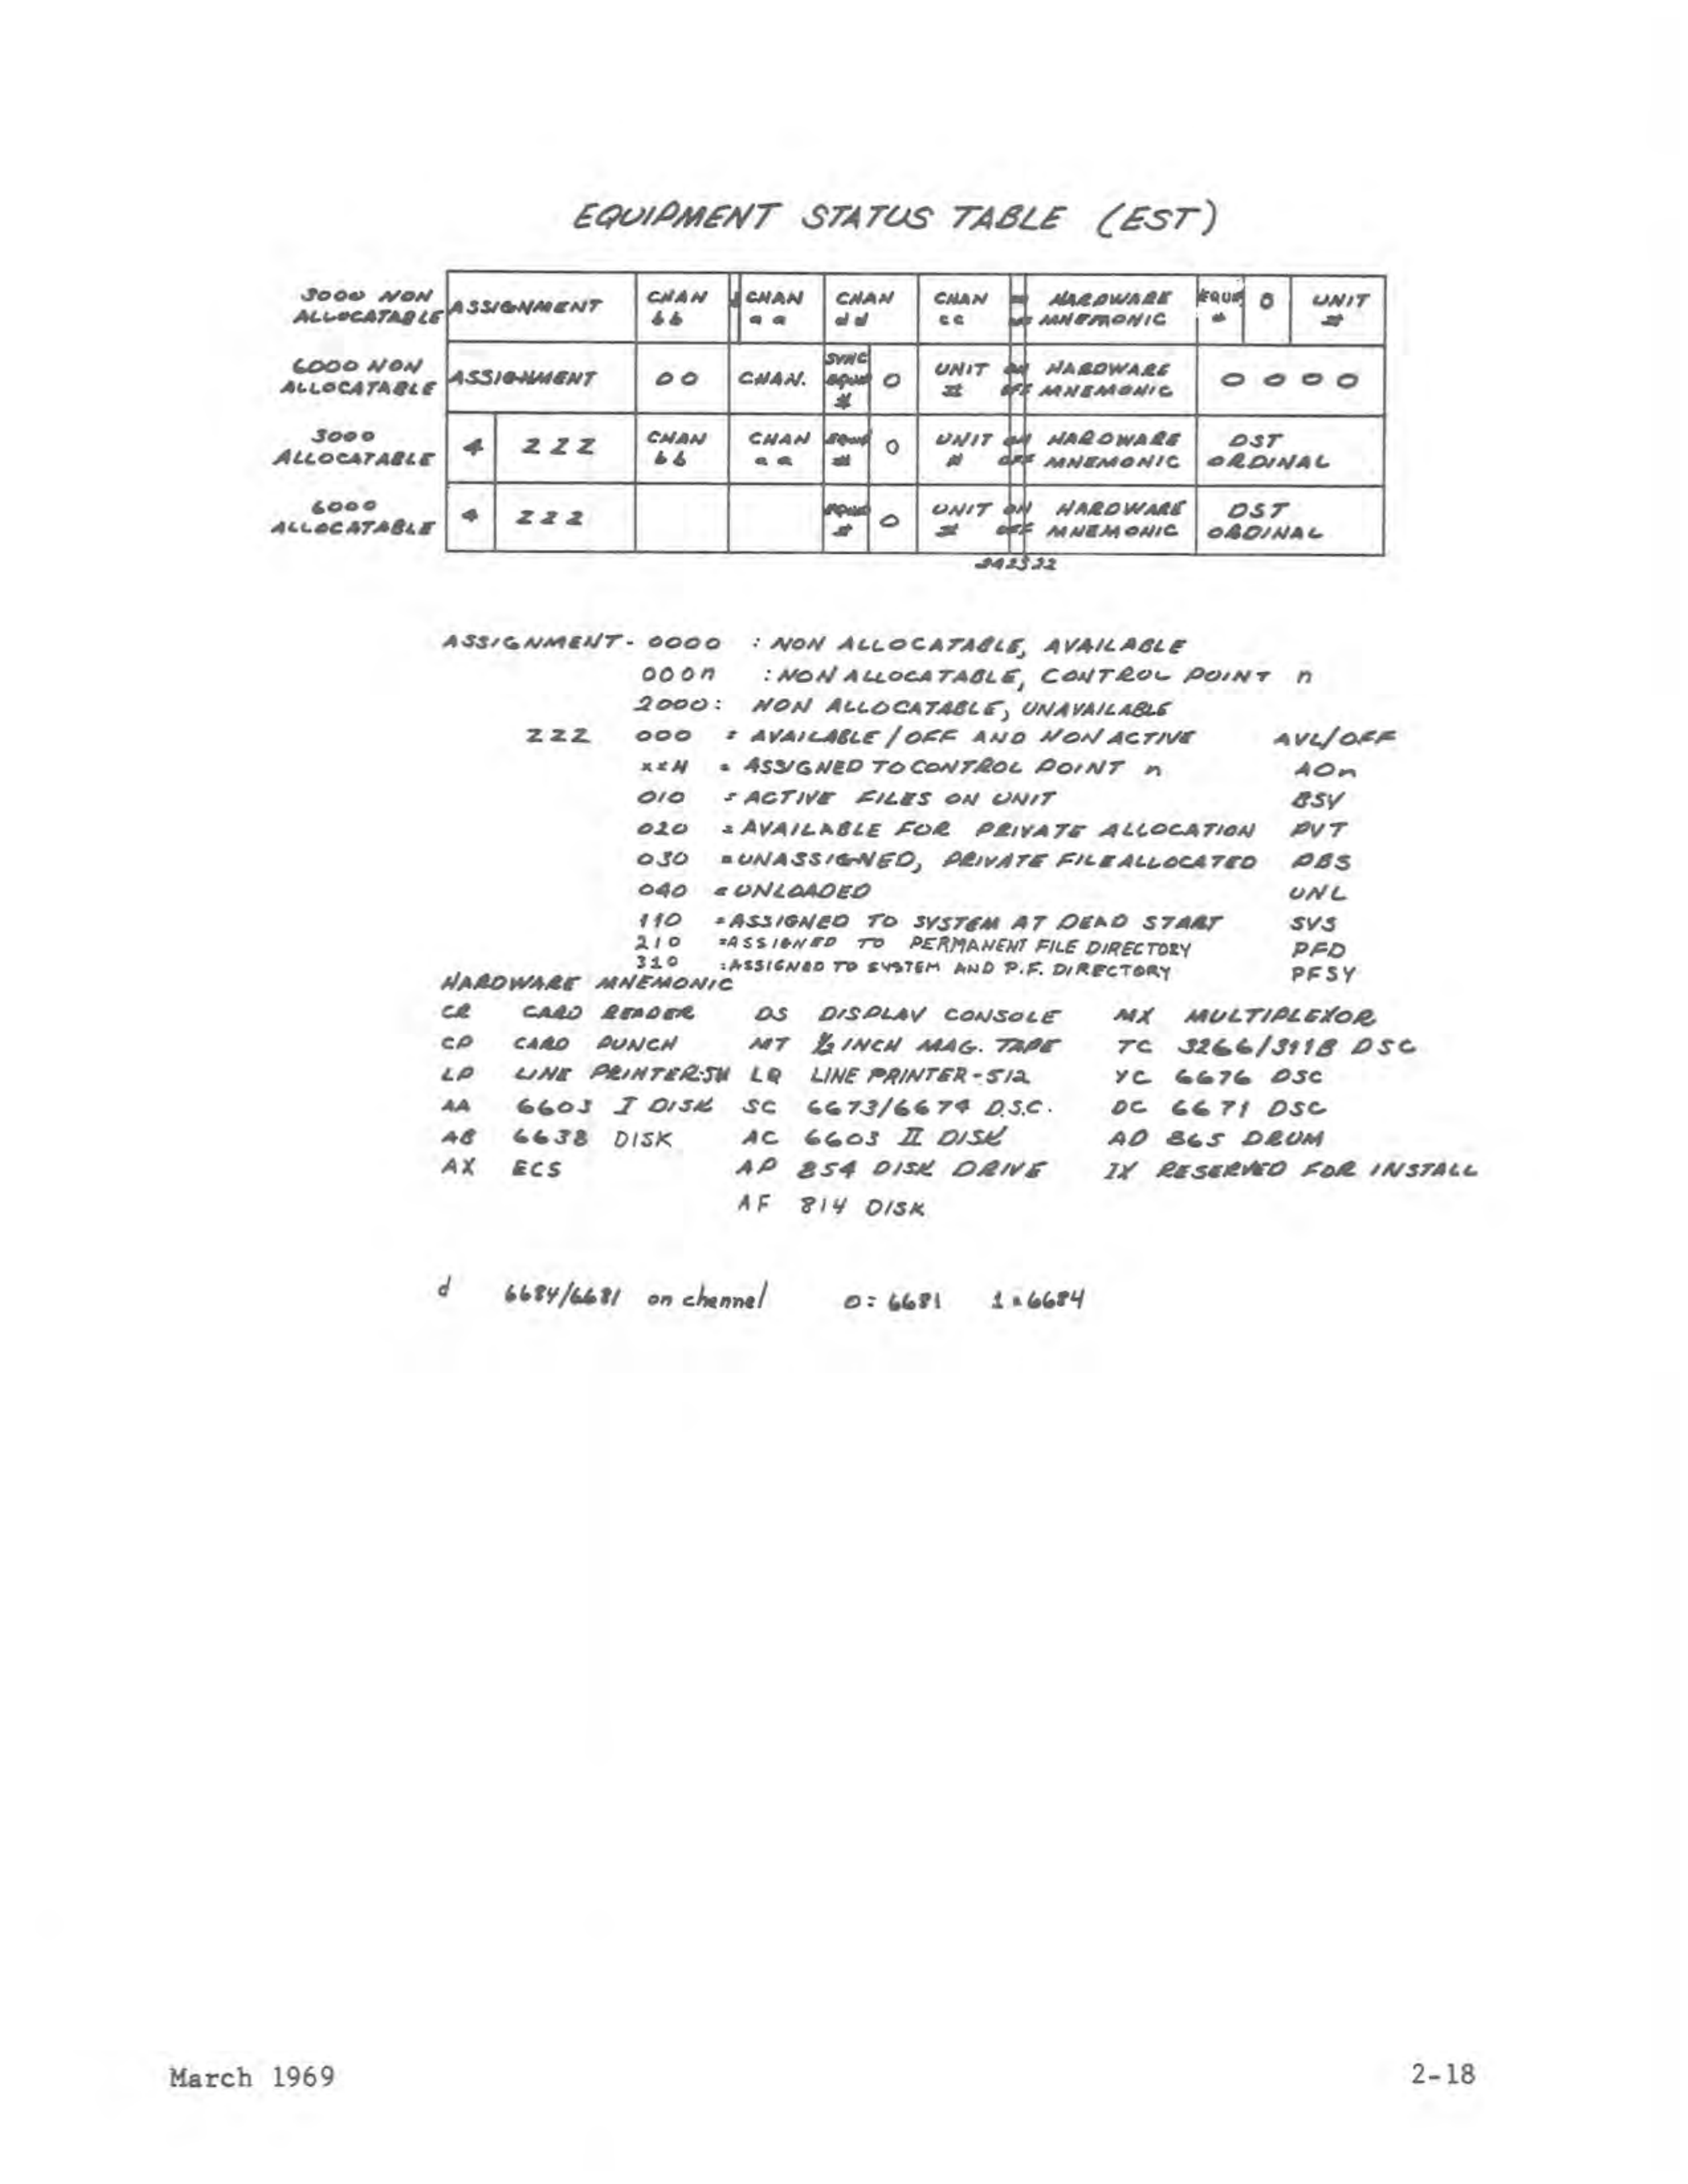 EQUIPMENT STATUS TABLE (EST)
3000 NON ALLOCATABLE ASSIGNMENT CHAN bb d CHAN aa CHAN dd CHAN cc HARDWARE MNEMONIC EQUIP # 0 UNIT #
6000 NON ALLOCATABLE ASSIGNMENT 00 CHAN. SYNC EQUIP # 0 UNIT # ON OFF HARDWARE MNEMONIC 0 0 0 0
3000 ALLOCATABLE 4 ZZZ CHAN bb CHAN aa EQUIP # 0 UNIT # ON OFF HARDWARE MNEMONIC DST ORDINAL
6000 ALLOCATABLE 4 ZZZ EQUIP # 0 UNIT # ON OFF HARDWARE MNEMONIC DST ORDINAL
242322
ASSIGNMENT - 0000 : NON ALLOCATABLE, AVAILABLE
000n : NON ALLOCATABLE, CONTROL POINT n
2000: NON ALLOCATABLE, UNAVAILABLE
ZZZ 000 = AVAILABLE / OFF AND NON ACTIVE AVL/OFF
xxN = ASSIGNED TO CONTROL POINT n AOn
010 = ACTIVE FILES ON UNIT BSY
020 = AVAILABLE FOR PRIVATE ALLOCATION PVT
030 = UNASSIGNED, PRIVATE FILE ALLOCATED PBS
040 = UNLOADED UNL
110 = ASSIGNED TO SYSTEM AT DEAD START SYS
210 = ASSIGNED TO PERMANENT FILE DIRECTORY PFD
310 : ASSIGNED TO SYSTEM AND P.F. DIRECTORY PFSY
HARDWARE MNEMONIC
CR CARD READER DS DISPLAY CONSOLE MX MULTIPLEXOR
CP CARD PUNCH MT ½ INCH MAG. TAPE TC 3266/311B DSC
LP LINE PRINTER LQ LINE PRINTER - 512 YC 6676 DSC
AA 6603 I DISK SC 6673/6674 D.S.C. DC 6671 DSC
AB 6638 DISK AC 6603 II DISK AD 865 DRUM
AX ECS AP 854 DISK DRIVE IX RESERVED FOR INSTALL
AF 814 DISK
d 6684/6681 on channel 0 = 6681 1 = 6684
March 1969 2-18